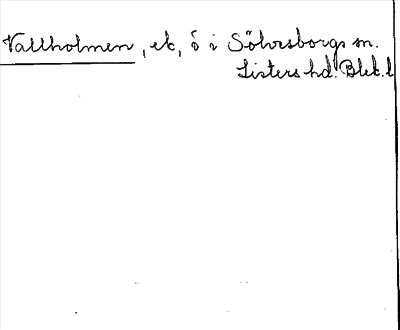 Vallholmen, ek, ö i Sölvesborgs sn.
Listers hd. Blek. l